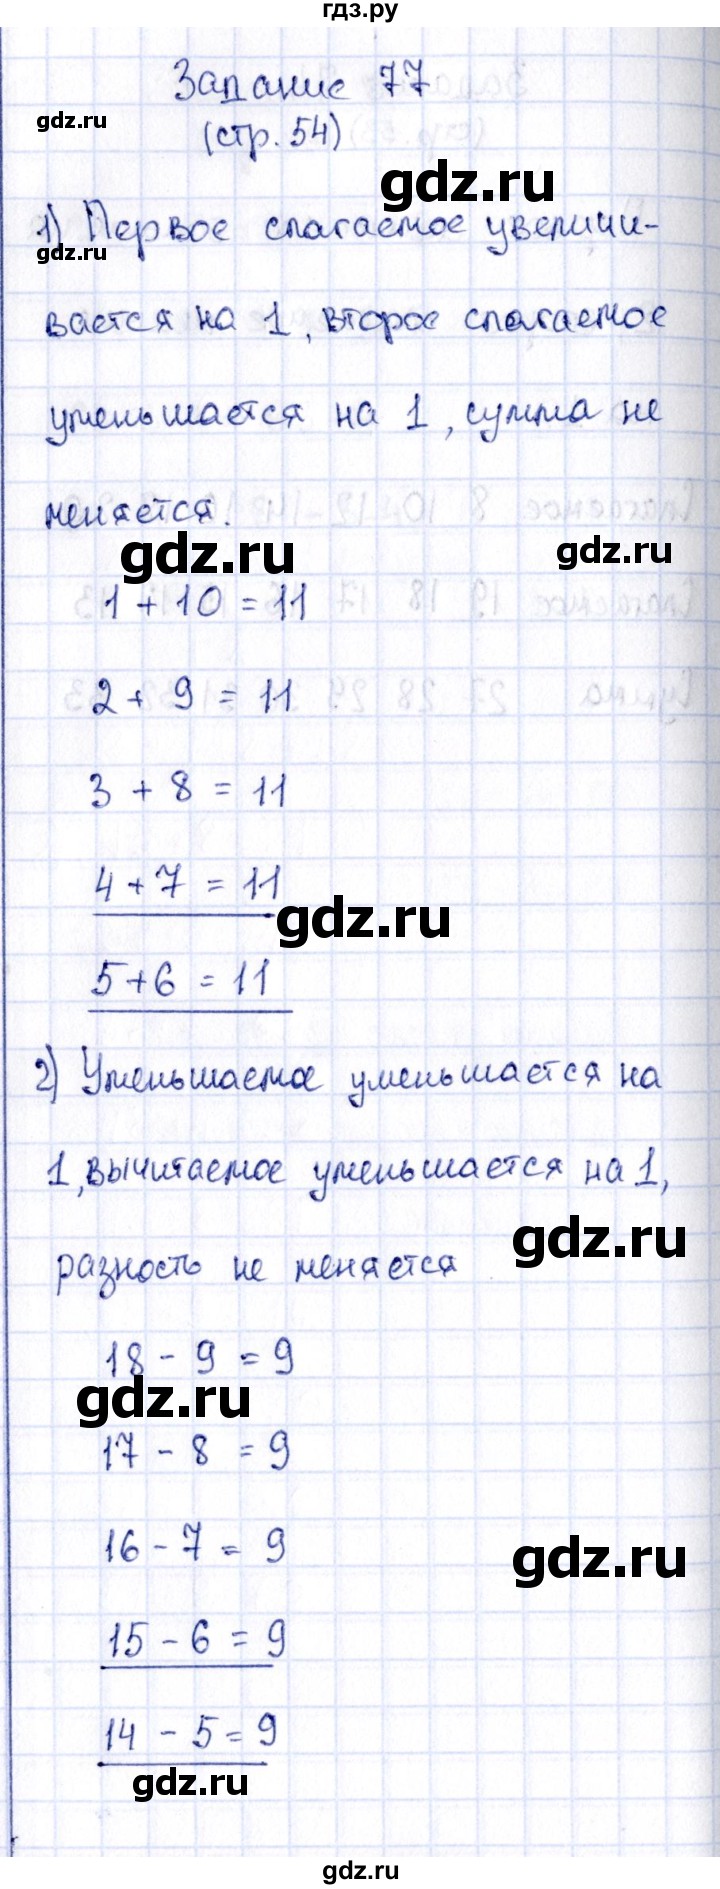 гдз.ру
Задание 77
gdz.ru
(стр. 54)
gdz.ru
1) Первое слагаемое увеличи-
gdz.ru
вается на 1, второе слагаемое
уменьшается на 1, сумма не
меняется.
gdz.ru
gdz.ru
1 + 10 = 11
2 + 9 = 11
3 + 8 = 11
4 + 7 = 11
gdz.ru
5 + 6 = 11
2) Уменьшаемое уменьшается на
1, вычитаемое уменьшается на 1,
gdz.ru
разность не меняется
18 - 9 = 9
gdz.ru
17 - 8 = 9
16 - 7 = 9
gdz.ru
15 - 6 = 9
14 - 5 = 9
gdz.ru
gdz.ru